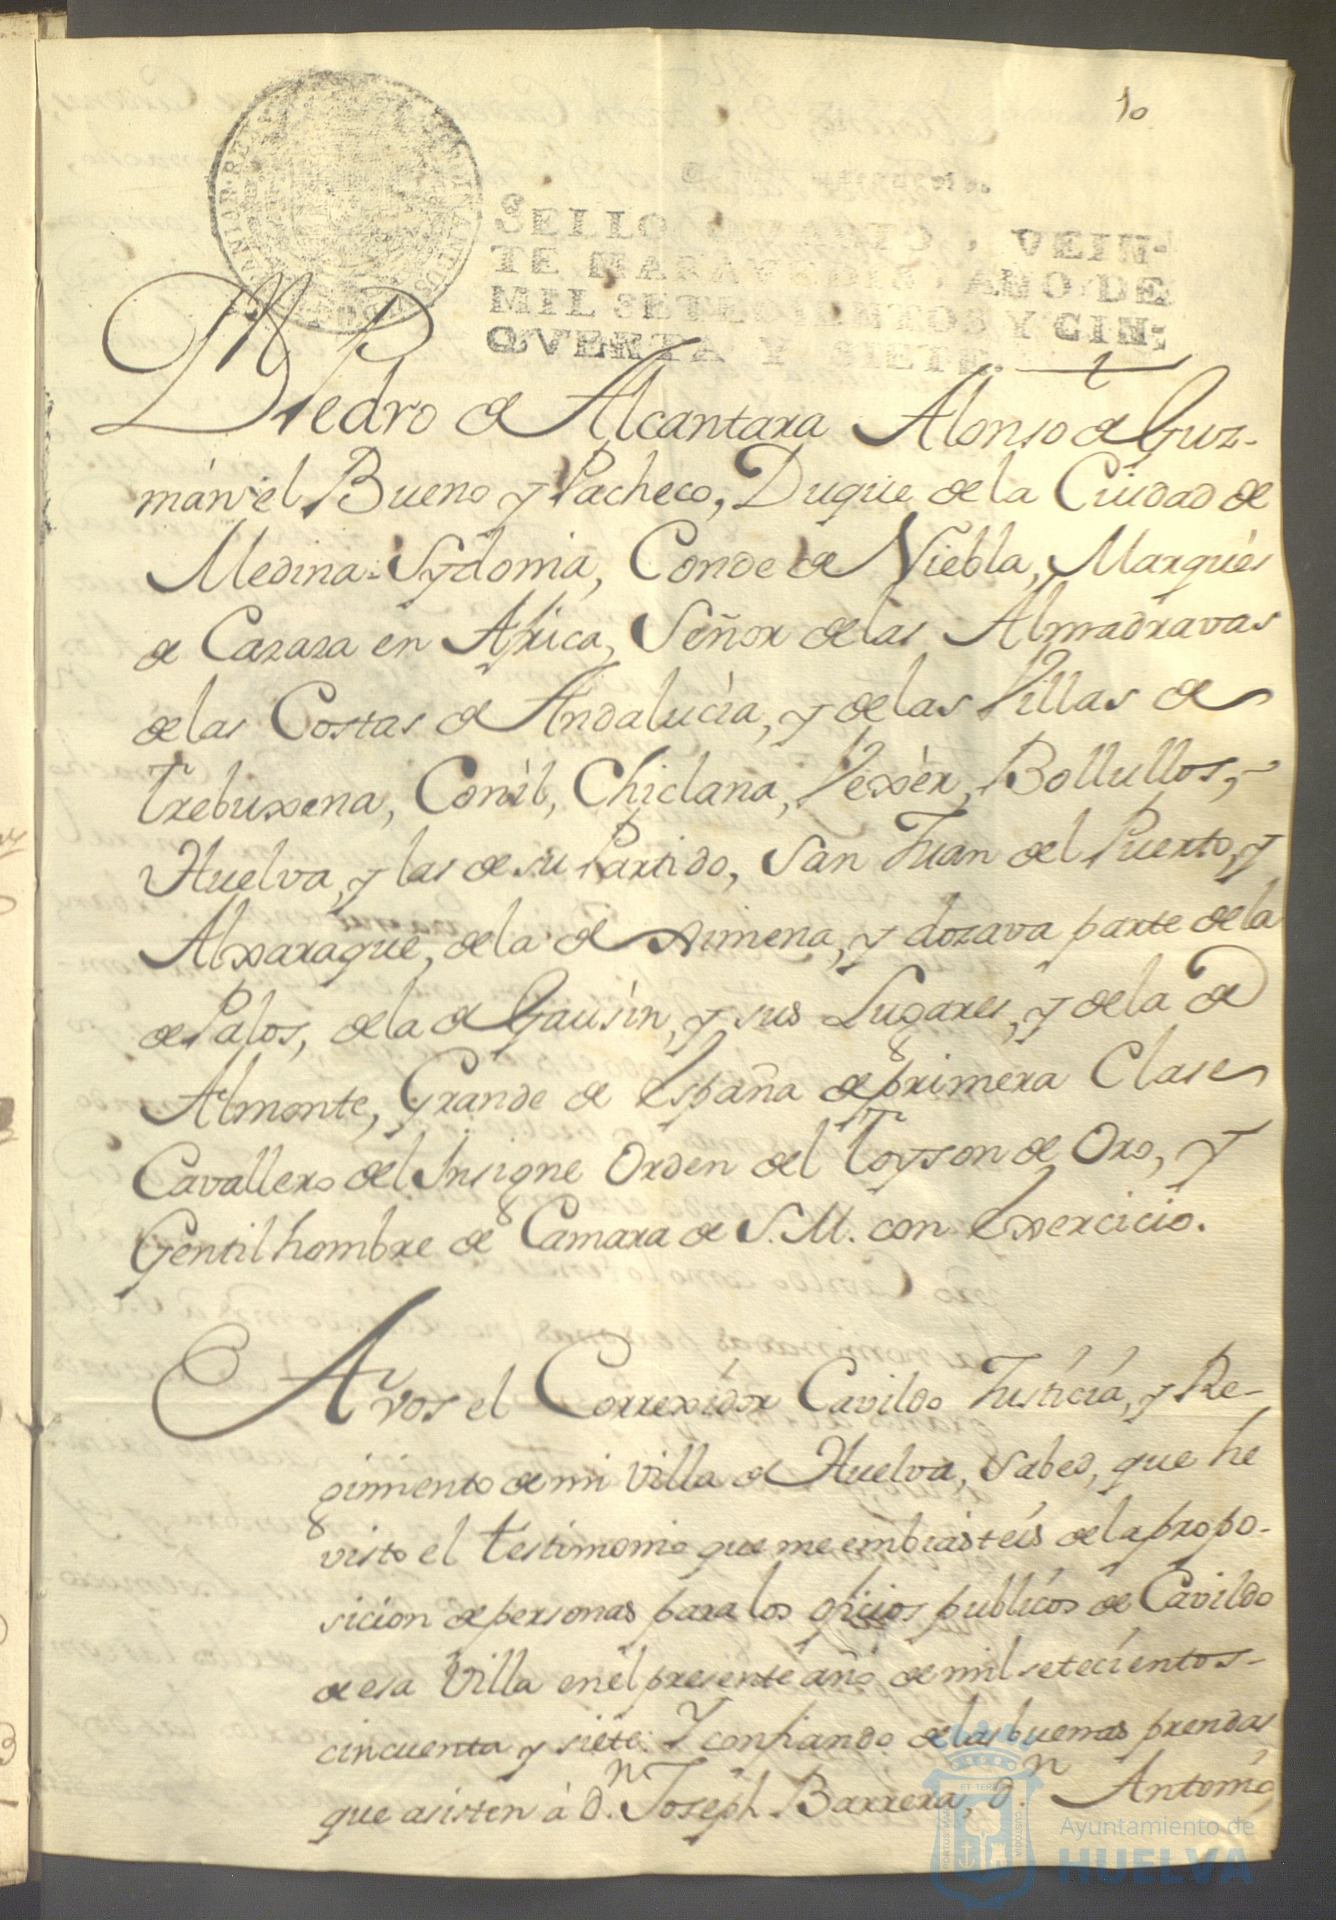 10
SELLO QVARTO, VEIN-
TE MARAVEDIS, AÑO DE
MIL SETECIENTOS Y CIN-
QVENTA Y SIETE.
Dn Pedro de Alcantara Alonso de Guz-
mán el Bueno y Pacheco, Duque de la Ciudad de
Medina Sydonia, Conde de Niebla, Marqués
de Cazaza en Africa, Señor de las Almadravas
de las Costas de Andalucía, y de las Villas de
Trebuxena, Coníl, Chiclana, Vexèr, Bollullos,
Huelva, y las de su Partido, San Juan del Puerto, y
Alxaraque, de la de Ximena, y dozava parte de la
de Palos, de la de Gausín, y sus Lugares, y de la de
Almonte, Grande de España de primera Clase
Cavallero del Insigne Orden del Toyson de Oro, y
Gentilhombre de Camara de S. M. con Exercicio.
A vos el Correxidor Cavildo Justicia, y Re-
gimiento de mi Villa de Huelva, Sabed, que he
visto el testimonio que me embiasteis de la propo-
sicion de personas para los oficios publicos de Cavildo
de esa Villa en el presente año de mil setecientos
cincuenta y siete: Y confiando de las buenas prendas
que asisten à Dn. Joseph Barrera, Dn Antonio
Ayuntamiento de
HUELVA